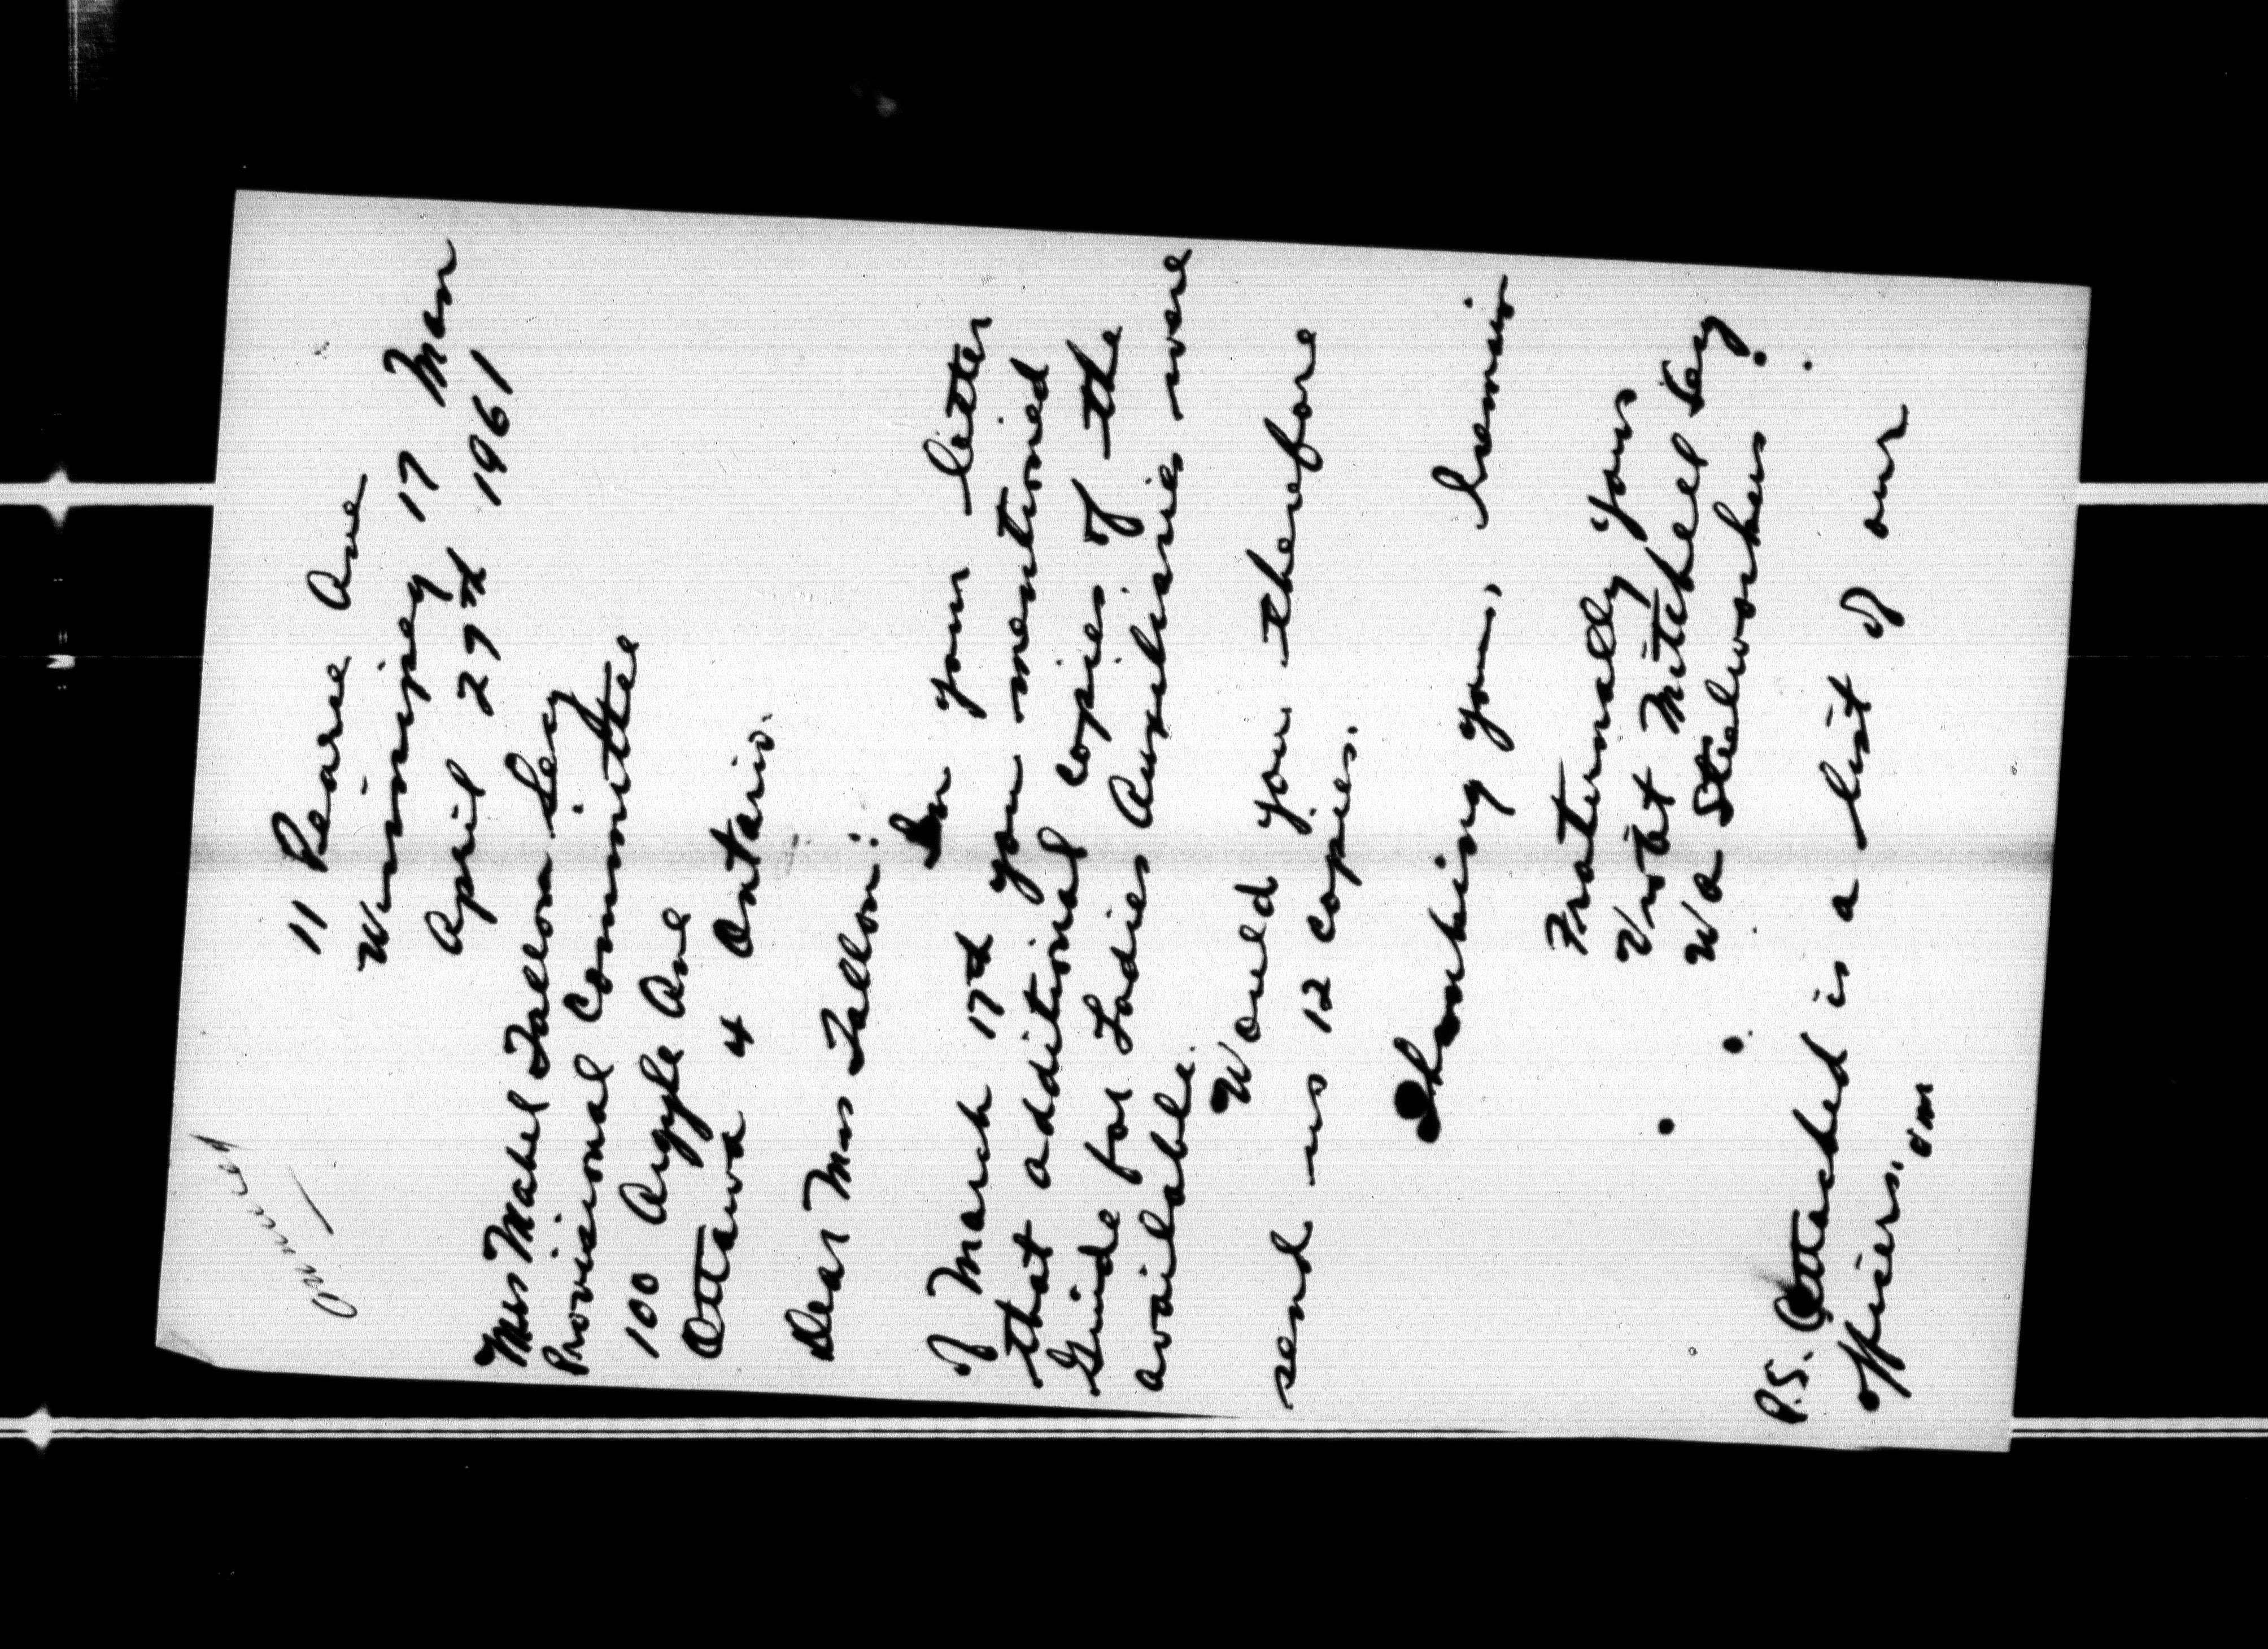 11 Pearce Ave
Winnipeg 17 Man
April 27th 1961
Mrs Mabel Fallon Secy
Provisional Committee
100 Argyle Ave
Ottawa 4 Ontario.
Dear Mrs Fallon:
In your letter
of March 17th you mentioned
that additional copies of the
Guide for Ladies Auxiliaries were
available.
Would you therefore
send us 12 copies.
Thanking you, I remain
Fraternally yours
Mitchell Secy
Steelworkers.
P.S. Attached is a list of our
officers.